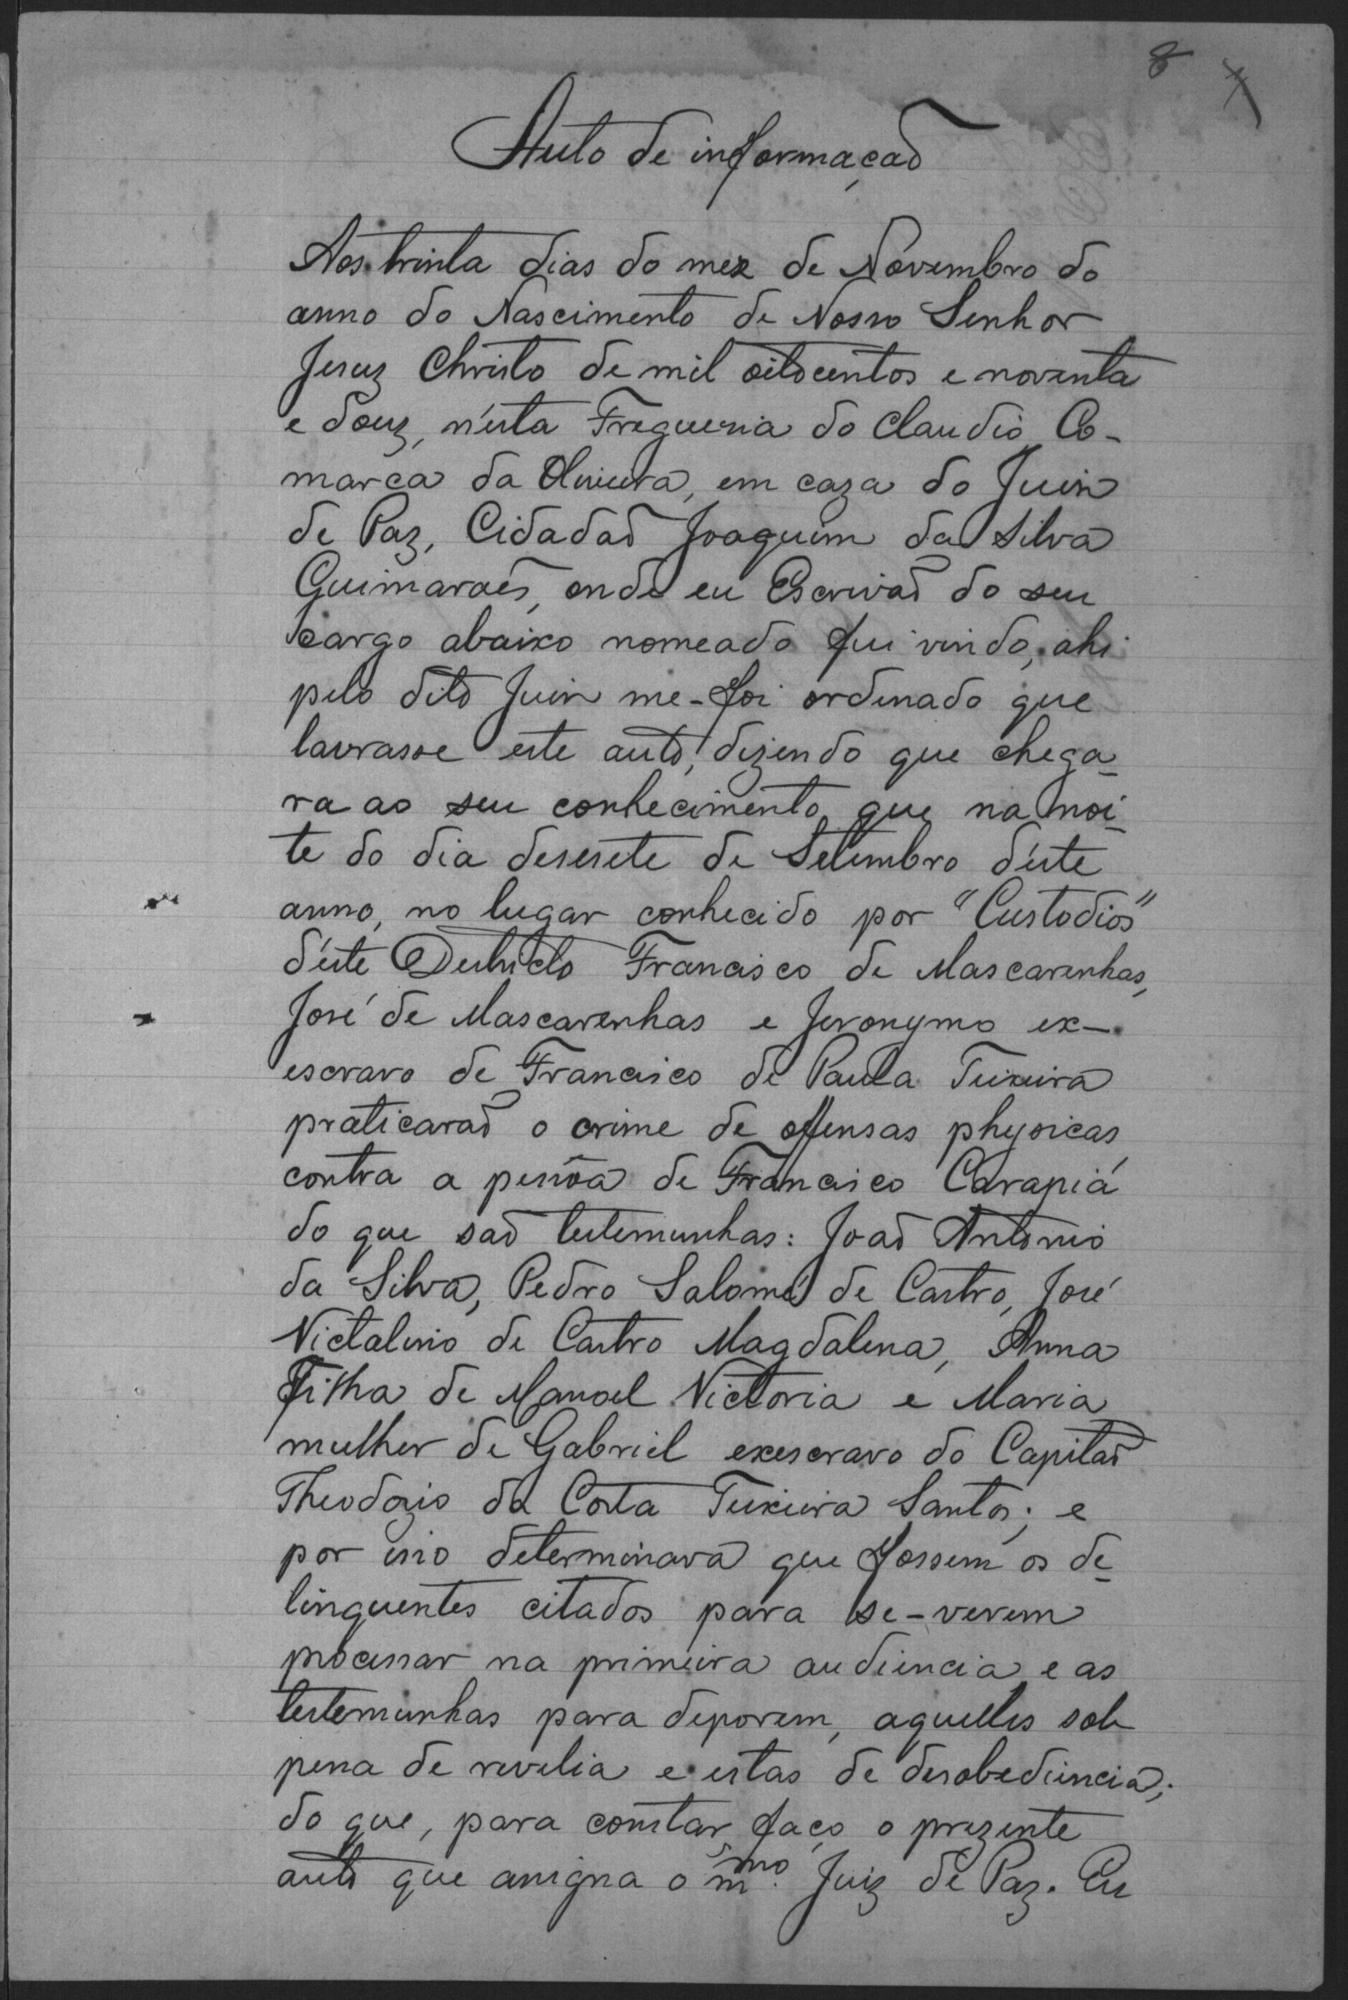 8
Auto de informaçaõ
Aos trinta dias do mez de Novembro do
anno do Nascimento de Nosso Senhor
Jesuz Christo de mil oitocentos e noventa
e douz, n'ésta Freguesia do Claudio, Co-
marca da Oliveira, em caza do Juiz
de Paz, Cidadaõ Joaquim da Silva
Guimaraẽs, onde eu Escrivaõ do seu
cargo abaixo nomeado fui vindo, ahi
pelo dito Juiz me-foi ordenado que
lavrasse este auto, dizendo que chega-
ra ao seu conhecimento que na noi-
te do dia desesete de Setembro d'éste
anno, no lugar conhecido por "Custodios"
d'éste Destricto Francisco de Mascarenhas,
José de Mascarenhas e Jeronymo ex-
escravo de Francisco de Paula Teixeira
praticaraõ o crime de offensas physicas
contra a pessõa de Francisco Carapiá
do que saõ testemunhas: Joaõ Antonio
da Silva, Pedro Salomé de Castro, José
Victalino de Castro Magdalena, Anna
Filha de Manoel Victoria e Maria
mulher de Gabriel exescravo do Capitaõ
Theodozio da Costa Teixeira Santos; e
por isso determinava que fossem os de-
linquentes citados para se-verem
processar na primeira audiencia e as
testemunhas para deporem, aquelles sob
pena de revelia e estas de desobediencia;
do que, para constar, faço o prezente
auto que assigna o mmo. Juiz de Paz. Eu